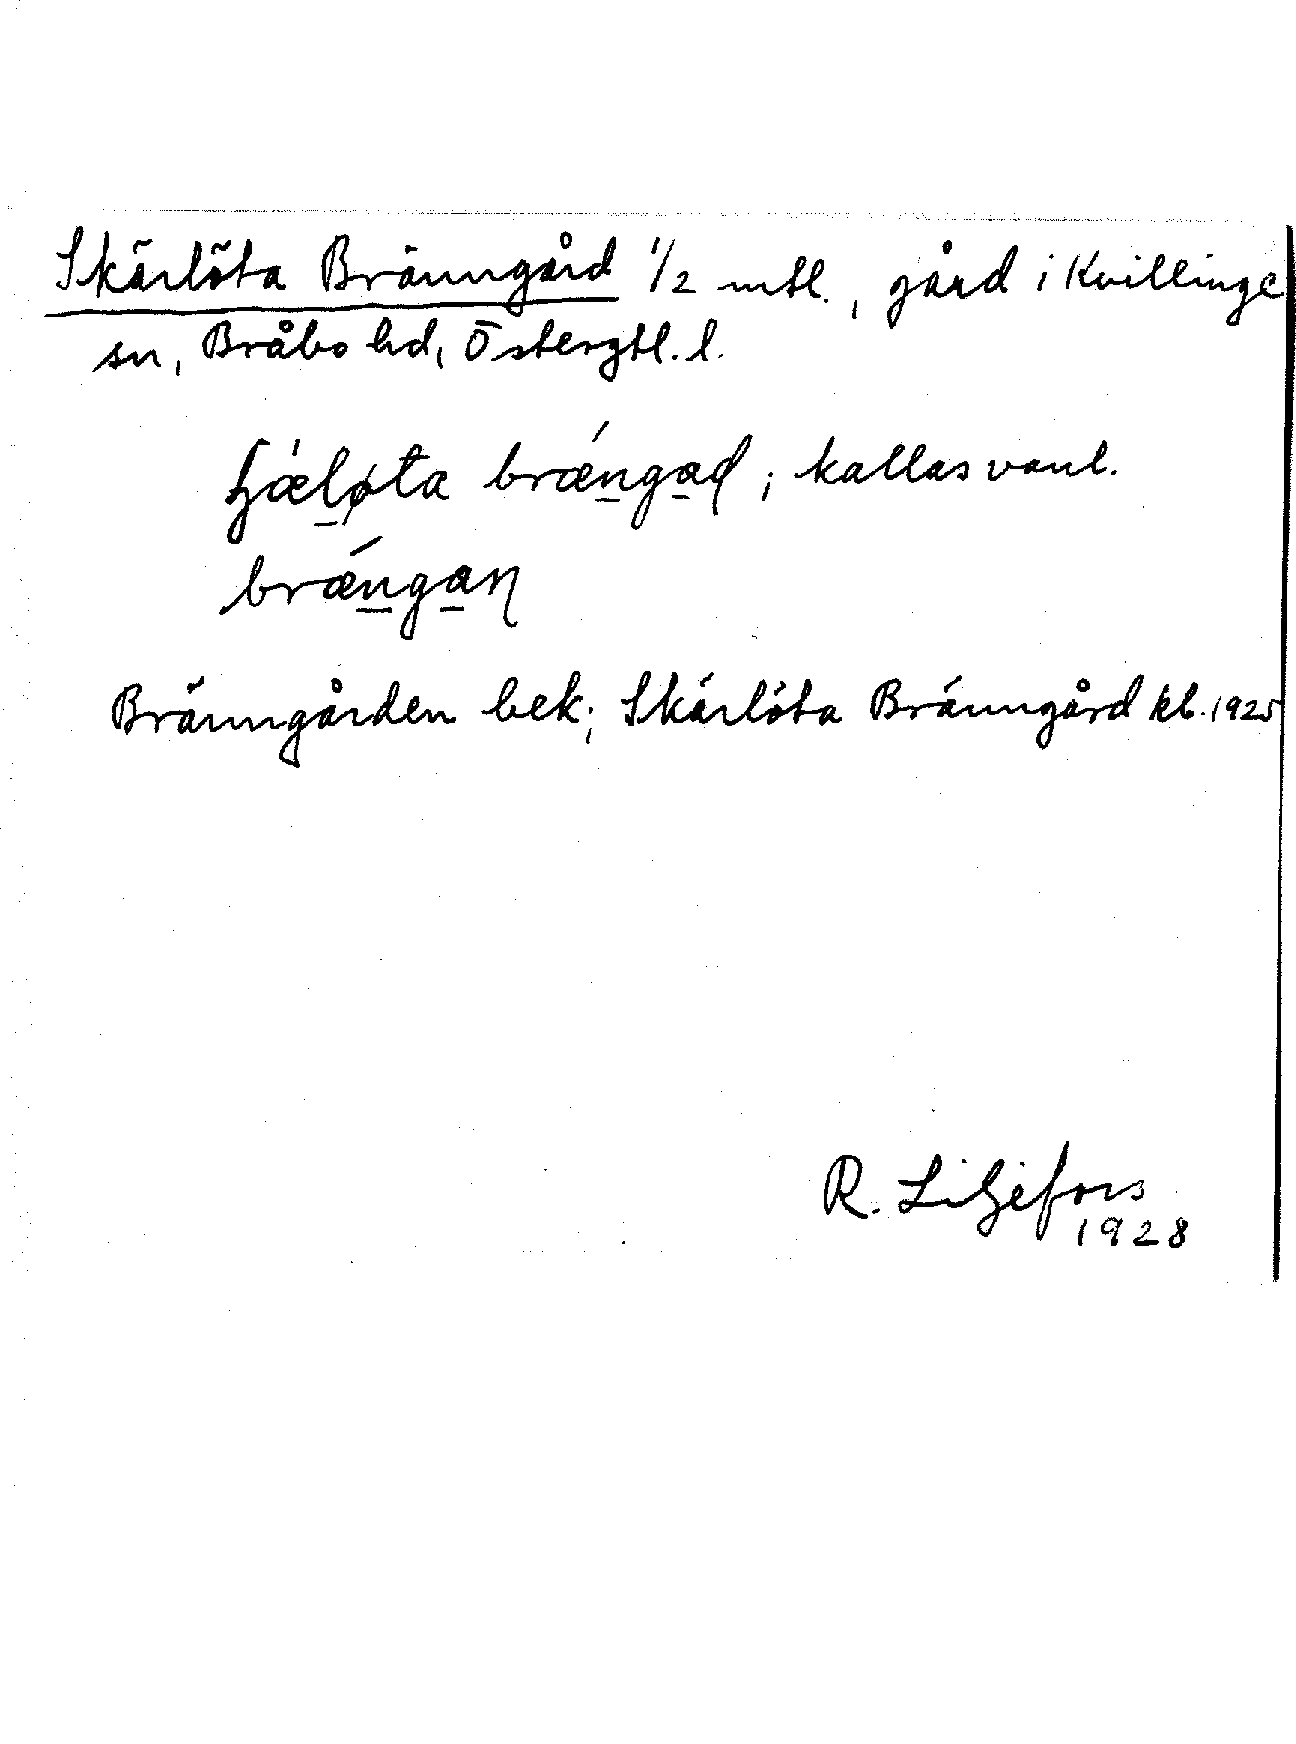 Skärlöta Bränngård 1/2 mtl., gård i Kvillinge
sn, Bråbo hd, Östergtl. l.
ɧǽløta brǽngaɖ; kallas vanl.
brǽngaɳ
Bränngården bek; Skärlöta Bränngård kl. 1925
R. Liljefors
1928